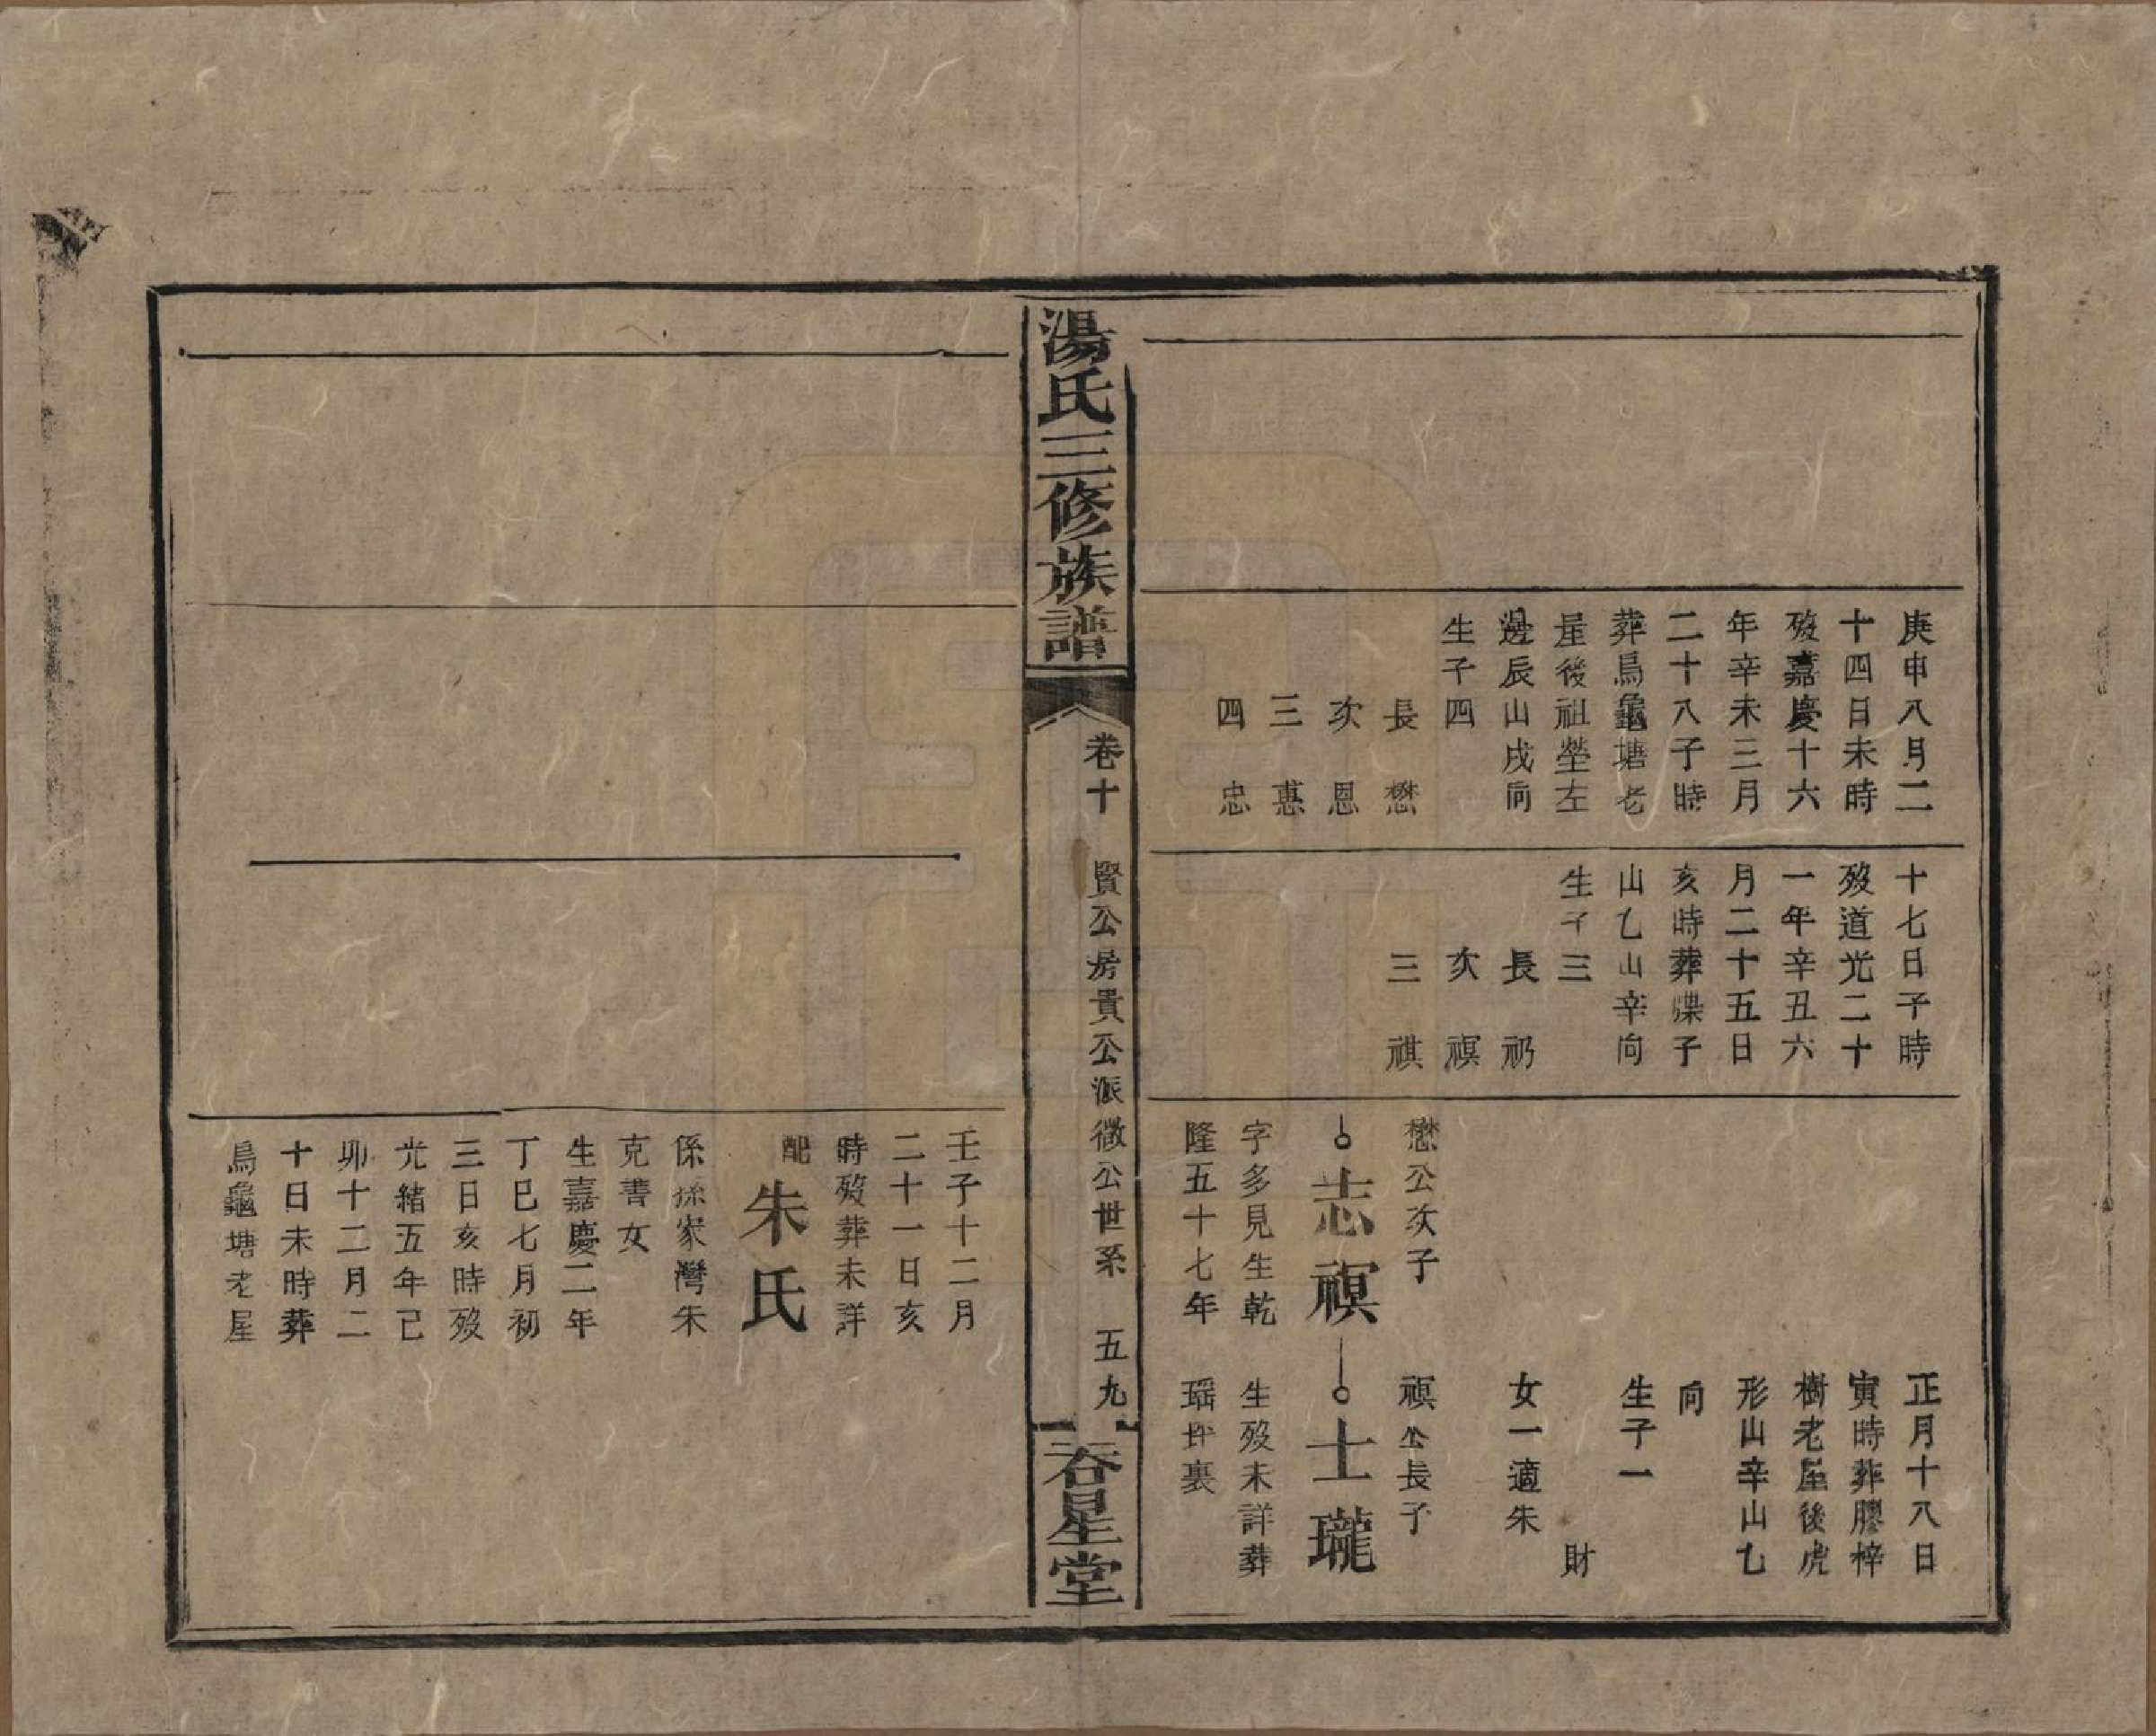 庚申八月二
十四日未時
歿嘉慶十六
年辛未三月
二十八子時
葬烏龜塘老
屋後祖塋左
邊辰山戌向
生子四
長 懋
次 恩
三 惠
四 忠
十七日子時
歿道光二十
一年辛丑六
月二十五日
亥時葬堞子
山乙山辛向
生子三
長 礽
次 禩
三 祺
懋公次子
志禩
字多見生乾
隆五十七年
正月十八日
寅時葬膠梓
樹老屋後虎
形山辛山乙
向
生子一
財
女一適朱
禩公長子
士瓏
生歿未詳葬
瑶坪裏
湯氏三修族譜
卷十 賢公房貴公派徵公世系 五九
吞星堂
壬子十二月
二十一日亥
時歿葬未詳
配朱氏
係孫家灣朱
克書女
生嘉慶二年
丁巳七月初
三日亥時歿
光緒五年己
卯十二月二
十日未時葬
烏龜塘老屋